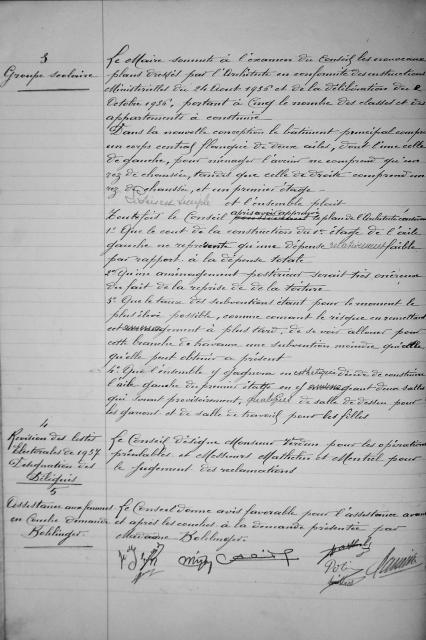 3
Groupe scolaire
Le Maire soumet à l'examen du Conseil les nouveaux
plans dressés par l'Architecte en conformité des instructions
Ministérielles du 24 Aout 1956 et de la délibération du 2
Octobre 1956, portant à Cinq le nombre des classes et des
appartements à construire
Dans la nouvelle conception le bâtiment principal comprend
un corps central flanqué de deux ailes, dont l'une celle
de gauche, pour ménager l'avenir ne comprend qu'un
rez de chaussée, tandis que celle de droite comprend un
rez de chaussée, et un premier étage
et l'ensemble plait
Toutefois le Conseil après avoir approuvé le plan de l'Architecte
1° Que le cout de la construction du 1er étage de l'aile
gauche ne représente qu'une dépense relativement faible
par rapport à la dépense totale
2° Qu'un aménagement postérieur serait très onéreux
du fait de la reprise de la toiture
3° Que le taux des subventions étant pour le moment le
plus élevé possible, comme courant le risque en remettant
cet à plus tard, de se voir allouer pour
cette branche de travaux une subvention moindre qu'elle
qu'elle peut obtenir a présent
4° Que l'ensemble y gagnera en esthétique décide de construire
l'aile gauche du premier étage en y deux salles
qui seront provisoirement, de salle de dessin pour
les garçons et de salle de travail pour les filles
4
Révision des listes
électorales de 1957
Désignation des
Délégués
Le Conseil désigne Monsieur pour les opérations
préalables et Messieurs et pour
le jugement des réclamations
5
Assistance aux femmes
en Couche
Bohlinger
Le Conseil donne avis favorable pour l'assistance avant
et après les couches à la demande présentée par
Madame Bohlinger.